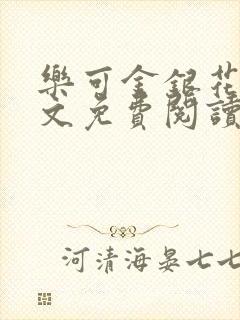 樂可金銀花
文免費閱讀
河清海晏七七